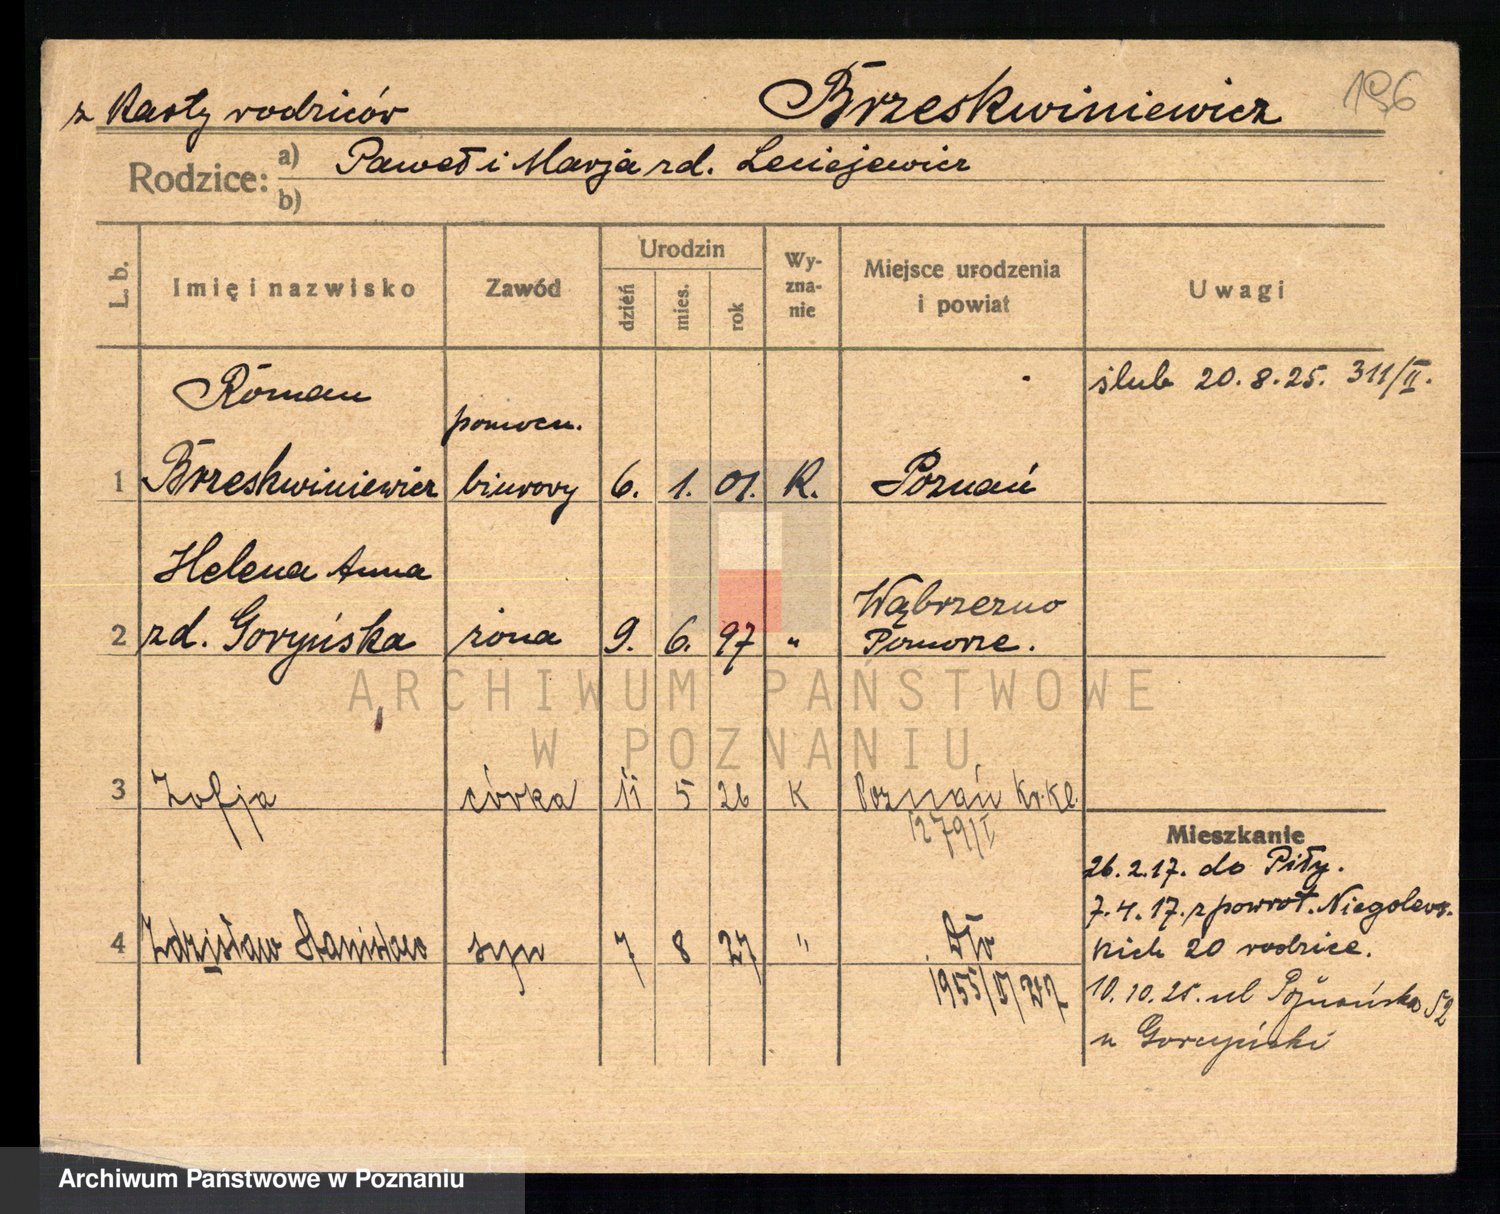 z Karty rodziców
Brzeskwiniewicz
196
Rodzice: a) Paweł i Marja zd. Leciejewicz
b)
L. b.
Imię i nazwisko
Zawód
Urodzin
dzień
mies.
rok
Wy-
zna-
nie
Miejsce urodzenia
i powiat
Uwagi
Roman
pomocn.
ślub 20.8.25. 311/II.
1 Brzeskwiniewicz biurowy 6. 1. 01. K. Poznań
Helena Anna
Wąbrzezno
2 zd. Goryńska żona 9. 6. 97 " Pomorze.
ARCHIWUM PAŃSTWOWE
W POZNANIU
3 Zofja córka 11 5 26 K Poznań Kr.Kl.
1279/I
Mieszkanie
26.2.17. do Piły.
7.4.17. z powrot. Niegolews.
4 Zdzisław Stanisław syn 7 8 27 "
kich 20 rodzice.
10.10.25. ul Poznańska 52
u Goryński
Archiwum Państwowe w Poznaniu